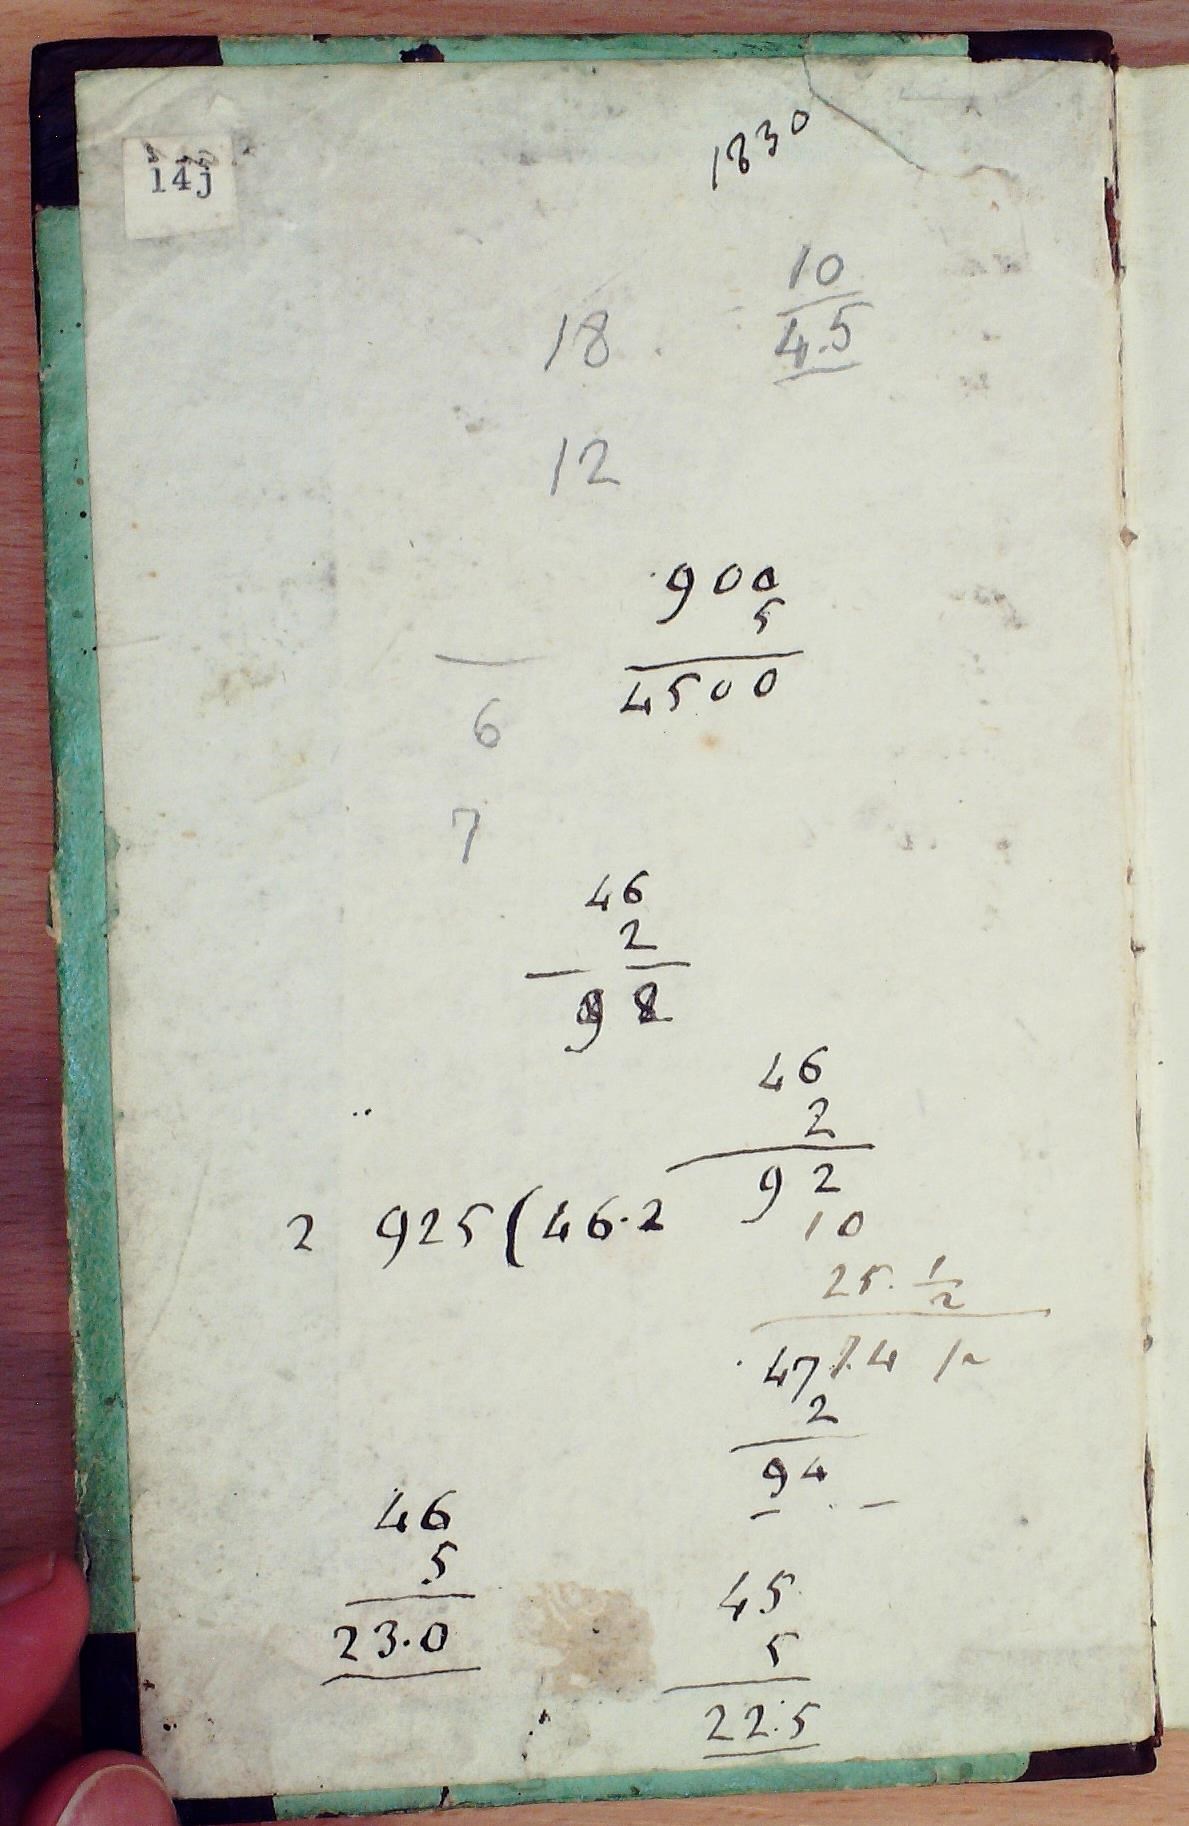 14j
1830
10
4.5
18
12
900
5
4500
6
7
46
2
98
46
2
92
2 925 ( 46.2
10
25. 1/2
47 7.4 1/2
2
94
46
5
23.0
45
5
22.5